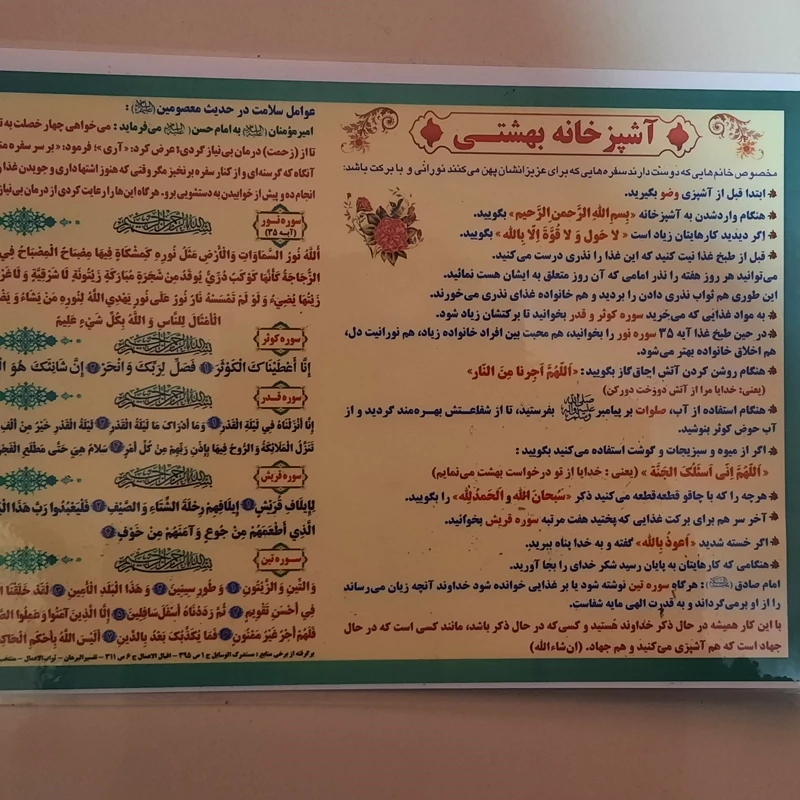 آشپزخانه بهشتی
مخصوص خانم‌هایی که دوست دارند سفره‌هایی که برای عزیزانشان پهن می‌کنند نورانی و با برکت باشد:
ابتدا قبل از آشپزی وضو بگیرید.
هنگام واردشدن به آشپزخانه «بِسمِ اللهِ الرَّحمنِ الرَّحیم» بگویید.
اگر دیدید کارهایتان زیاد است «لا حَولَ وَ لا قُوَّةَ اِلّا بِالله» بگویید.
قبل از طبخ غذا نیت کنید که این غذا را نذری درست می‌کنید.
می‌توانید هر روز هفته را نذر امامی که آن روز متعلق به ایشان هست نمائید.
این طوری هم ثواب نذری دادن را بردید و هم خانواده غذای نذری می‌خورند.
به مواد غذایی که می‌خرید سوره کوثر و قدر بخوانید تا برکتشان زیاد شود.
در حین طبخ غذا آیه ۳۵ سوره نور را بخوانید، هم محبت بین افراد خانواده زیاد، هم نورانیت دل،
هم اخلاق خانواده بهتر می‌شود.
هنگام روشن کردن آتش اجاق‌گاز بگویید: «اَللّهُمَّ اَجِرنا مِنَ النّار»
(یعنی: خدایا مرا از آتش دوزخت دورکن)
هنگام استفاده از آب، صلوات بر پیامبر ﷺ بفرستید، تا از شفاعتش بهره‌مند گردید و از
آب حوض کوثر بنوشید.
اگر از میوه و سبزیجات و گوشت استفاده می‌کنید بگویید:
«اَللّهُمَّ اِنّی اَسئَلُکَ الجَنَّة» (یعنی: خدایا از تو درخواست بهشت می‌نمایم)
هرچه را که با چاقو قطعه‌قطعه می‌کنید ذکر «سُبحانَ الله و الحَمدُلِله» را بگویید.
آخر سر هم برای برکت غذایی که پختید هفت مرتبه سوره قریش بخوانید.
اگر خسته شدید «اَعوذُ بِالله» گفته و به خدا پناه ببرید.
هنگامی که کارهایتان به پایان رسید شکر خدای را بجا آورید.
امام صادق : هرگاه سوره تین نوشته شود یا بر غذایی خوانده شود خداوند آنچه زیان می‌رساند
را از او برمی‌گرداند و به قدرت الهی مایه شفاست.
با این کار همیشه در حال ذکر خداوند هستید و کسی‌که در حال ذکر باشد، مانند کسی است که در حال
جهاد است که هم آشپزی می‌کنید و هم جهاد. (ان‌شاءالله)
عوامل سلامت در حدیث معصومین :
امیرمؤمنان به امام حسن می‌فرماید : می‌خواهی چهار خصلت به
تا از (زحمت) درمان بی‌نیاز گردی؛ عرض کرد: «آری»؛ فرمود: «بر سر سفره
آنگاه که گرسنه‌ای و از کنار سفره برنخیز مگر وقتی که هنوز اشتها داری و جویدن غذا
انجام ده و پیش از خوابیدن به دستشویی برو. هرگاه این‌ها را رعایت کردی از درمان بی‌نیاز
سوره نور (آیه ۳۵)
بِسْمِ اللهِ الرَّحْمنِ الرَّحِيمِ
اَللَّهُ نُورُ السَّمَاوَاتِ وَالْأَرْضِ مَثَلُ نُورِهِ كَمِشْكَاةٍ فِيهَا مِصْبَاحٌ الْمِصْبَاحُ فِي
الزُّجَاجَةُ كَأَنَّهَا كَوْكَبٌ دُرِّيٌّ يُوقَدُ مِنْ شَجَرَةٍ مُبَارَكَةٍ زَيْتُونَةٍ لَا شَرْقِيَّةٍ وَ لَا
زَيْتُهَا يُضِيءُ وَ لَوْ لَمْ تَمْسَسْهُ نَارٌ نُورٌ عَلَى نُورٍ يَهْدِي اللَّهُ لِنُورِهِ مَنْ يَشَاءُ وَ
الْأَمْثَالَ لِلنَّاسِ وَ اللَّهُ بِكُلِّ شَيْءٍ عَلِيمٌ
سوره کوثر
بِسْمِ اللهِ الرَّحْمنِ الرَّحِيمِ
إِنَّا أَعْطَيْنَاكَ الْكَوْثَرَ ۱ فَصَلِّ لِرَبِّكَ وَ انْحَرْ ۲ إِنَّ شَانِئَكَ هُوَ
سوره قدر
بِسْمِ اللهِ الرَّحْمنِ الرَّحِيمِ
إِنَّا أَنْزَلْنَاهُ فِي لَيْلَةِ الْقَدْرِ ۱ وَمَا أَدْرَاكَ مَا لَيْلَةُ الْقَدْرِ ۲ لَيْلَةُ الْقَدْرِ خَيْرٌ مِنْ
تَنَزَّلُ الْمَلَائِكَةُ وَ الرُّوحُ فِيهَا بِإِذْنِ رَبِّهِمْ مِنْ كُلِّ أَمْرٍ ۴ سَلَامٌ هِيَ حَتَّى مَطْلَعِ الْفَجْرِ
سوره قریش
بِسْمِ اللهِ الرَّحْمنِ الرَّحِيمِ
لِإِيلَافِ قُرَيْشٍ ۱ إِيلَافِهِمْ رِحْلَةَ الشِّتَاءِ وَ الصَّيْفِ ۲ فَلْيَعْبُدُوا رَبَّ هَذَا
الَّذِي أَطْعَمَهُمْ مِنْ جُوعٍ وَ آمَنَهُمْ مِنْ خَوْفٍ ۴
سوره تین
بِسْمِ اللهِ الرَّحْمنِ الرَّحِيمِ
وَ التِّينِ وَ الزَّيْتُونِ ۱ وَ طُورِ سِينِينَ ۲ وَ هَذَا الْبَلَدِ الْأَمِينِ ۳ لَقَدْ خَلَقْنَا
فِي أَحْسَنِ تَقْوِيمٍ ۴ ثُمَّ رَدَدْنَاهُ أَسْفَلَ سَافِلِينَ ۵ إِلَّا الَّذِينَ آمَنُوا وَ عَمِلُوا
فَلَهُمْ أَجْرٌ غَيْرُ مَمْنُونٍ ۶ فَمَا يُكَذِّبُكَ بَعْدُ بِالدِّينِ ۷ أَلَيْسَ اللَّهُ بِأَحْكَمِ
برگرفته از برخی منابع : مستدرک الوسایل ج ۱ ص ۳۹۵ - اقبال الاعمال ج ۶ ص ۳۱۱ - تفسیر البرهان - ثواب الاعمال -